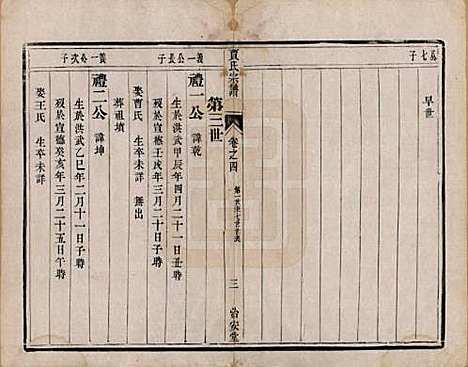 子七品
早世
賈氏宗譜
卷之四
三
治安堂
第三世
子長公一義
禮一公 諱乾
生於洪武甲辰年四月二十一日丑時
歿於宣德壬戌年三月二十日子時
娶曹氏 生卒未詳 無出
葬祖墳
子次公一義
禮二公 諱坤
生於洪武乙巳年二月十一日子時
歿於宣德癸亥年三月二十五日午時
娶王氏 生卒未詳